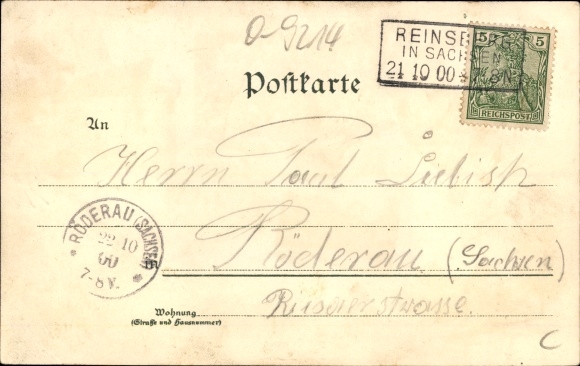 O-9214
REINSBERG
IN SACHSEN
21 10 00
5 5
REICHSPOST
Postkarte
An
Herrn Paul Liebisch
RÖDERAU (SACHSEN)
22 10
00
7-8V.
in
Röderau (Sachsen)
Riesaerstrasse.
Wohnung
(Straße und Hausnummer)
C